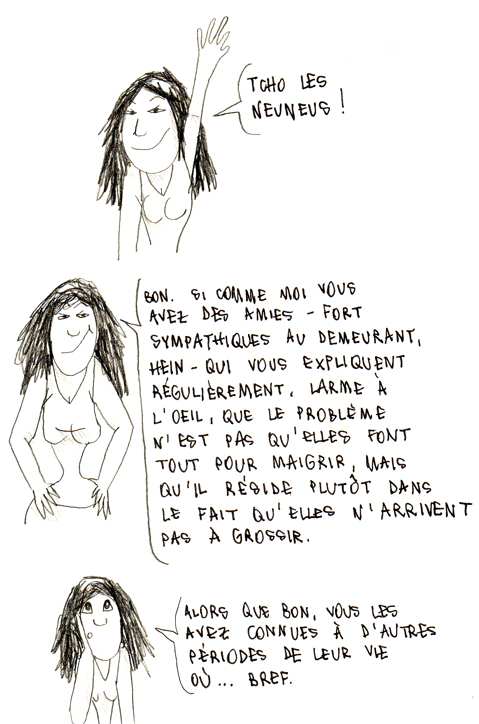 TCHO LES
NEUNEUS !
BON. SI COMME MOI VOUS
AVEZ DES AMIES - FORT
SYMPATHIQUES AU DEMEURANT,
HEIN - QUI VOUS EXPLIQUENT
RÉGULIÈREMENT, LARME À
L'OEIL, QUE LE PROBLÈME
N'EST PAS QU'ELLES FONT
TOUT POUR MAIGRIR, MAIS
QU'IL RÉSIDE PLUTÔT DANS
LE FAIT QU'ELLES N'ARRIVENT
PAS À GROSSIR.
ALORS QUE BON, VOUS LES
AVEZ CONNUES À D'AUTRES
PÉRIODES DE LEUR VIE
OÙ... BREF.